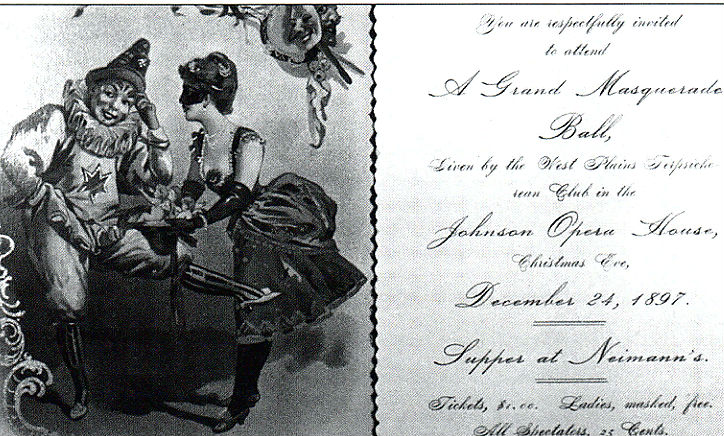 You are respectfully invited
to attend
A Grand Masquerade
Ball,
Given by the West Plains Terpsicho-
rean Club in the
Johnson Opera House,
Christmas Eve,
December 24, 1897.
Supper at Neimann's.
Tickets, $1.00. Ladies, masked, free.
All Spectators, 25 Cents.